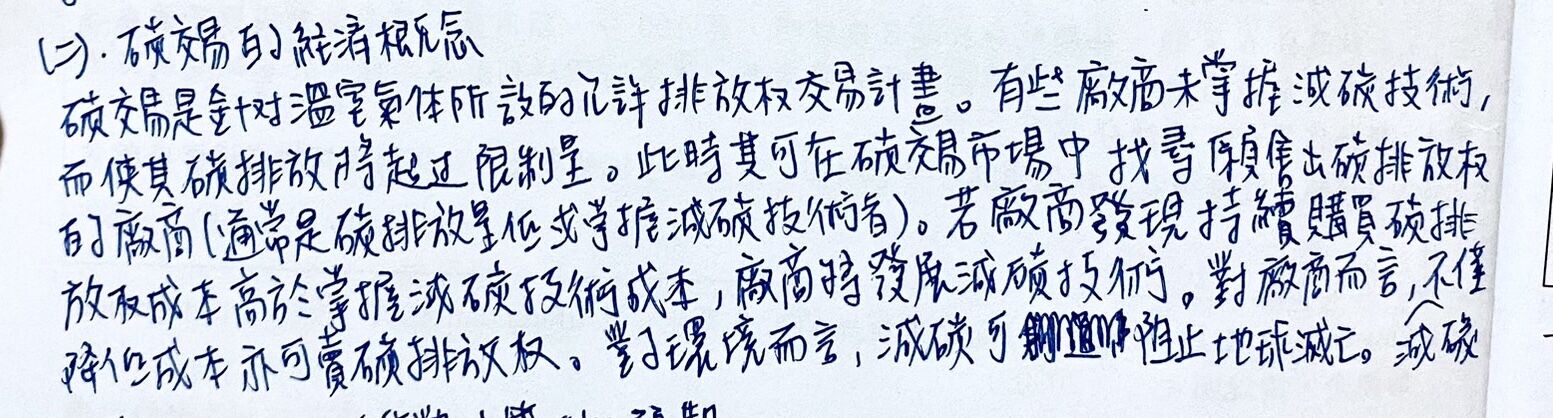 (二). 碳交易的經濟概念
碳交易是針对溫室氣体所設的允許排放权交易計畫。有些廠商未掌握減碳技術,
而使其碳排放將超过限制量。此時其可在碳交易市場中找尋願售出碳排放权
的廠商(通常是碳排放量低或掌握減碳技術者)。若廠商發現持續購買碳排
放权成本高於掌握減碳技術成本,廠商將發展減碳技術。對廠商而言,減碳不僅
降低成本亦可賣碳排放权。對環境而言,減碳可阻止地球滅亡。